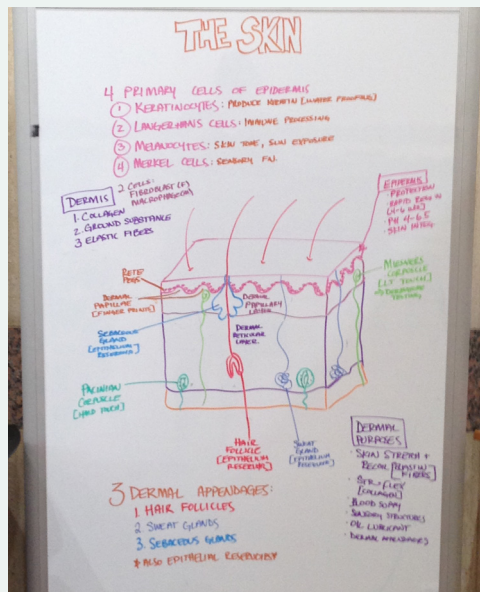 THE SKIN
4 PRIMARY CELLS OF EPIDERMIS
1 KERATINOCYTES: PRODUCE KERATIN [WATER PROOFING]
2 LANGERHANS CELLS: IMMUNE PROCESSING
3 MELANOCYTES: SKIN TONE, SUN EXPOSURE
4 MERKEL CELLS: SENSORY FN.
DERMIS
2 CELLS:
FIBROBLAST (F)
MACROPHAGE (M)
1. COLLAGEN
2. GROUND SUBSTANCE
3 ELASTIC FIBERS
EPIDERMIS
- PROTECTION
- RAPID REGEN
[4-6 WKS]
- PH 4-6.5
- SKIN INTEG
RETE
PEGS
DERMAL
PAPILLAE
[FINGER POINTS]
SEBACEOUS
GLAND
[EPITHELIUM
RESERVOIR]
DERMAL
PAPILLARY
LAYER
DERMAL
RETICULAR
LAYER
CORPUSCLE
[LT TOUCH]
PACINIAN
CORPUSCLE
[HARD TOUCH]
HAIR
FOLLICLE
[EPITHELIUM
RESERVOIR]
SWEAT
GLAND
[EPITHELIUM
RESERVOIR]
DERMAL
PURPOSES
· SKIN STRETCH +
RECOIL [ELASTIN
FIBERS]
[COLLAGEN]
· BLOOD SUPPLY
· SENSORY STRUCTURES
· OIL LUBRICANT
· DERMAL APPENDAGES
3 DERMAL APPENDAGES:
1. HAIR FOLLICLES
2 SWEAT GLANDS
3. SEBACEOUS GLANDS
* ALSO EPITHELIAL RESERVOIRS *